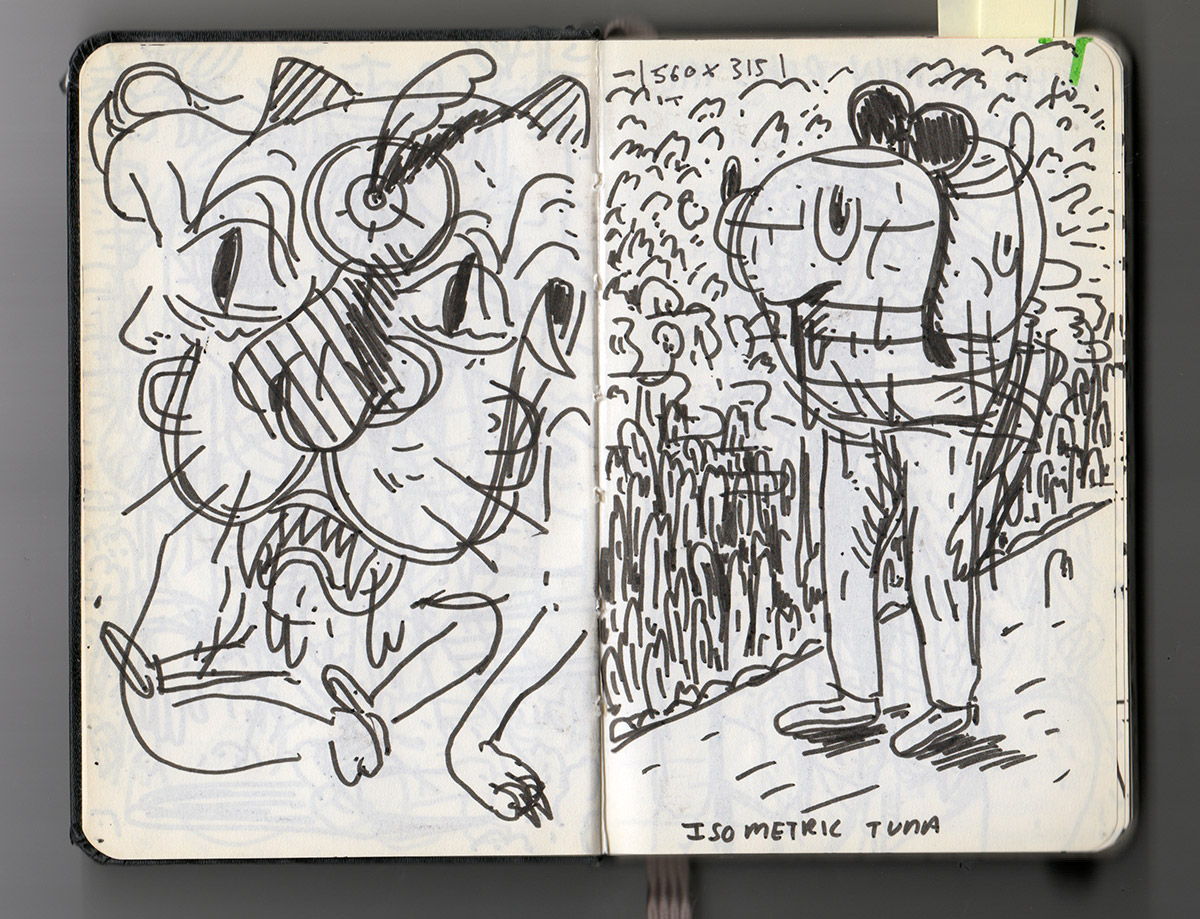 560 x 315
ISOMETRIC TUNA